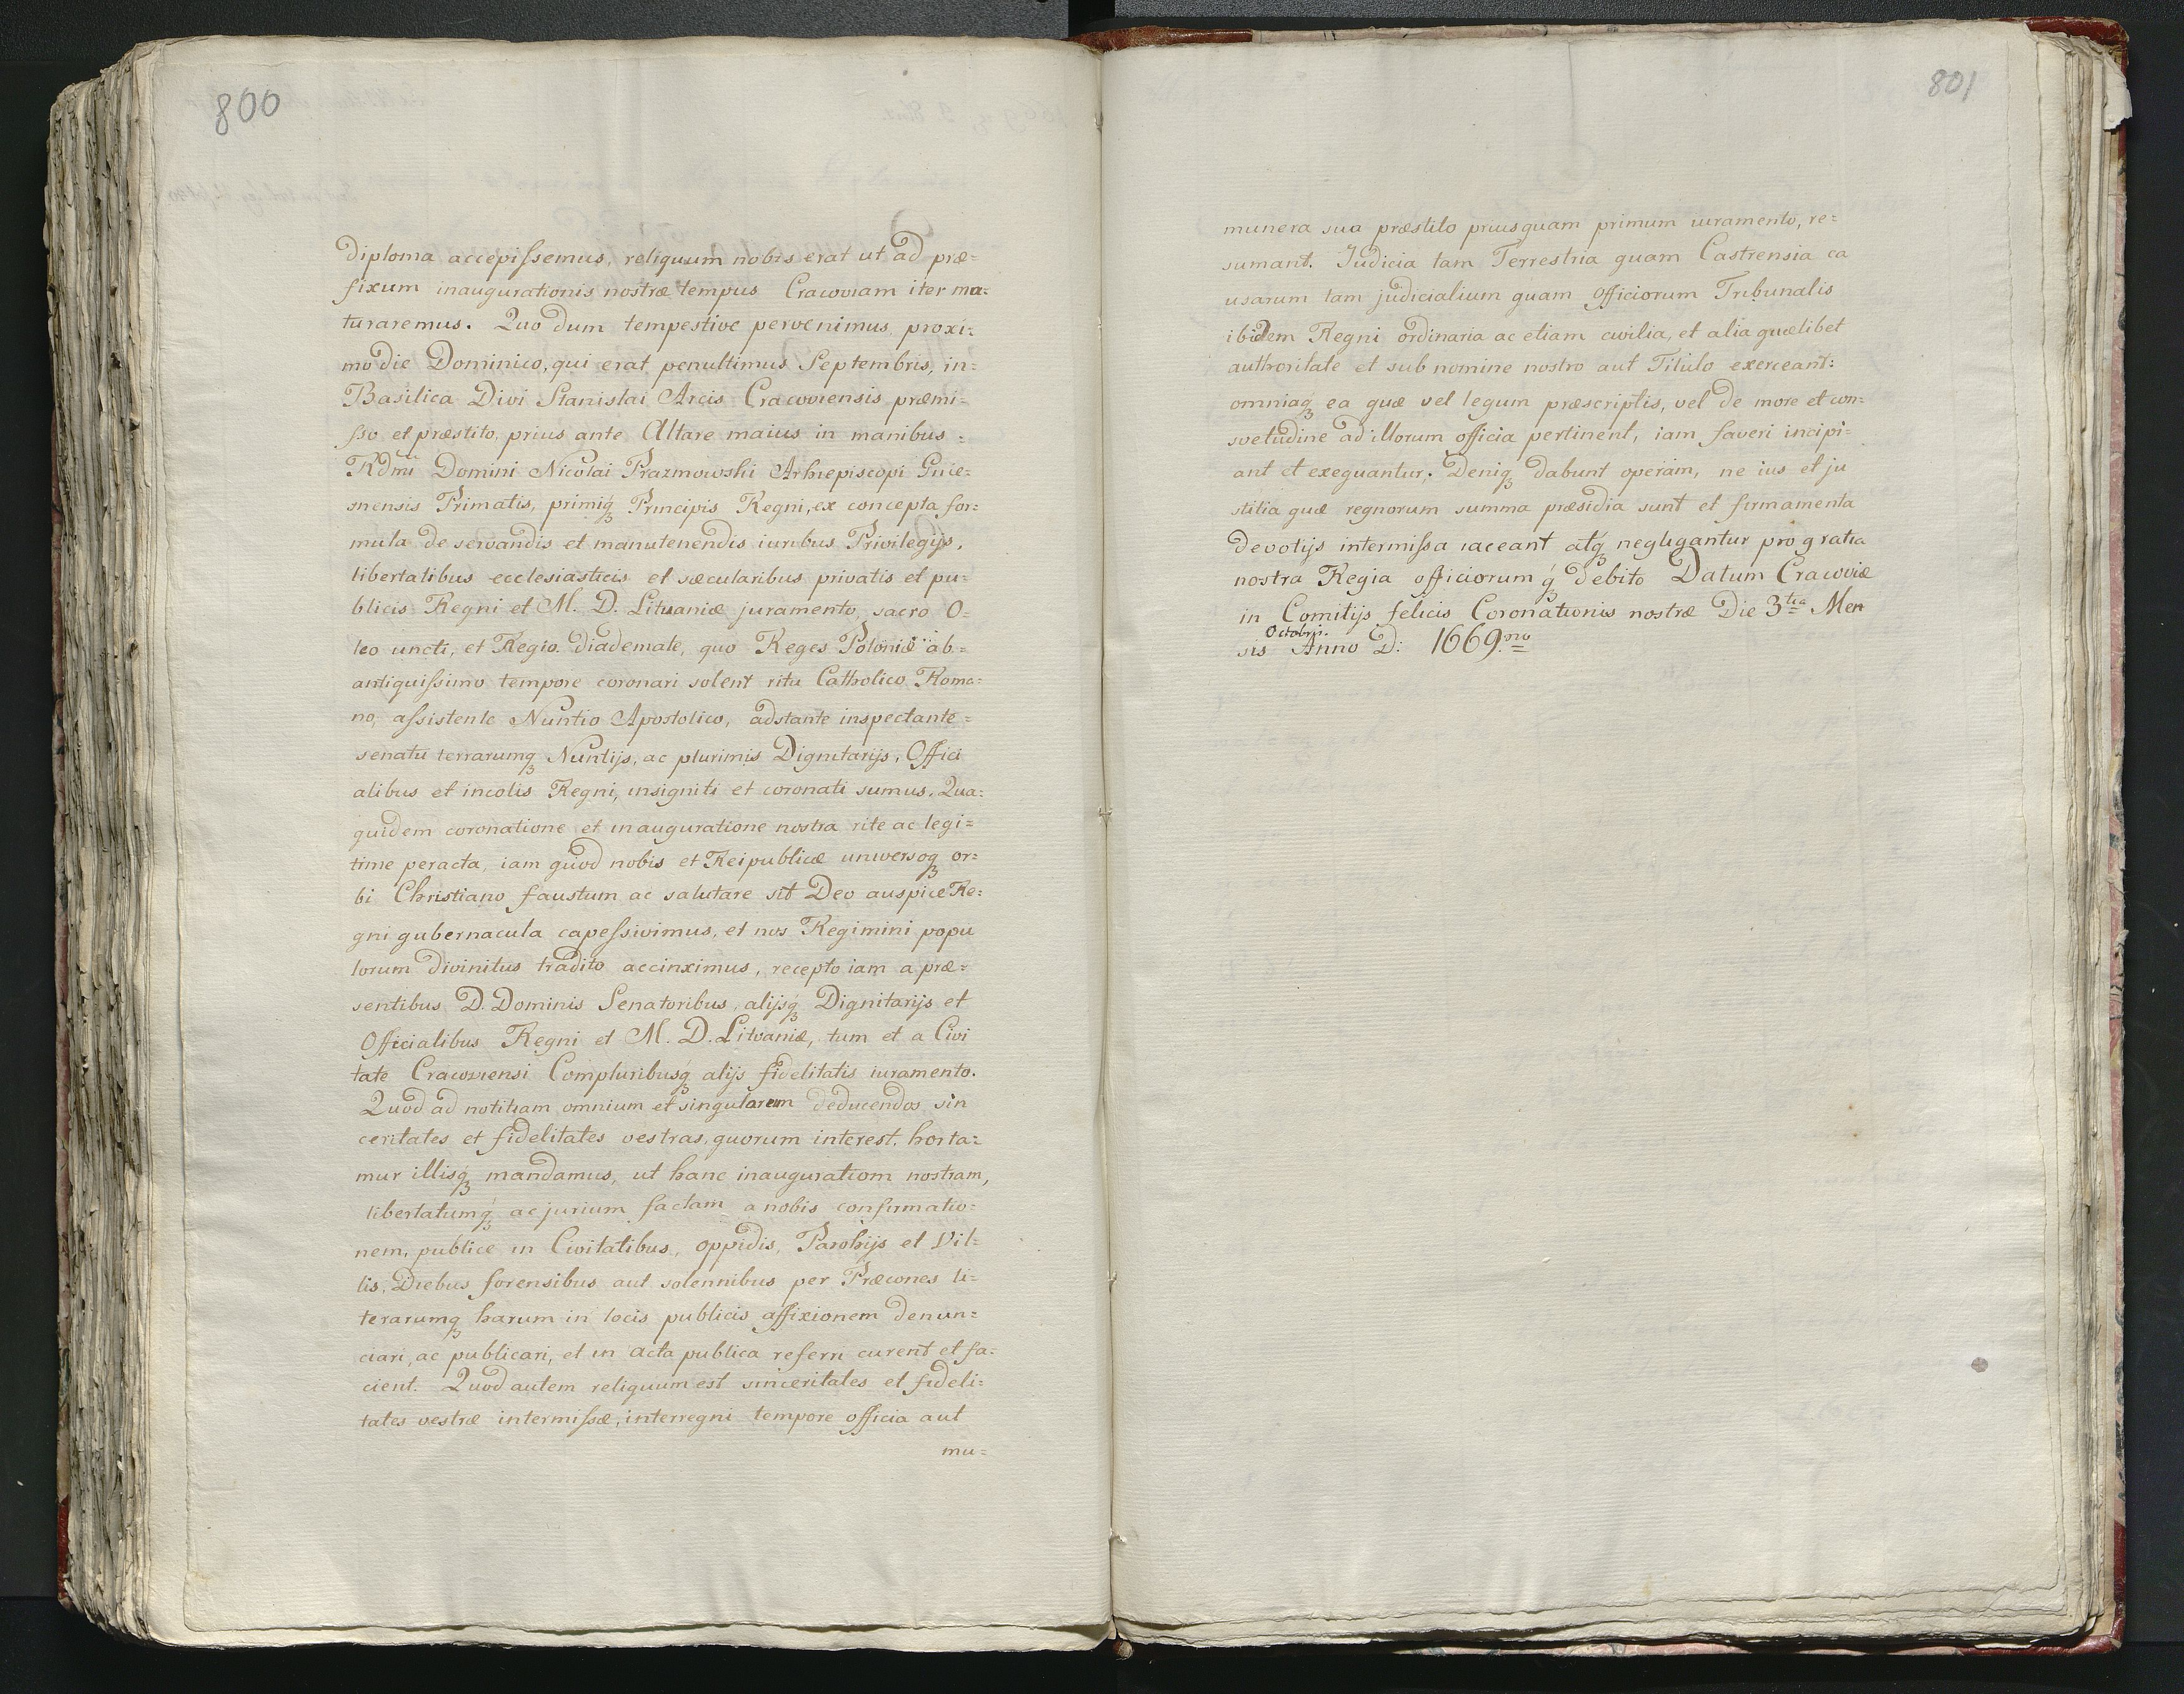 800
diploma accepissemus, reliquum nobis erat ut ad præ=
fixum inaugurationis nostræ tempus Cracoviam iter ma=
turaremus. Quo dum tempestive pervenimus, proxi=
mo die Dominico, qui erat penultimus Septembris, in=
Basilica Divi Stanislai Arcis Cracoviensis præmi=
sso et præstito, prius ante Altare maius in manibus =
Rdmi Domini Nicolai Prazmowski Arhiepiscopi Gnie=
snensis Primatis, primiq₃ Principis Regni, ex concepta for=
mula de servandis et manutenendis iuribus Privilegijs,
libertatibus ecclesiasticis et sæcularibus privatis et pu=
blicis Regni et M. D. Lituaniæ juramento, sacro O=
leo uncti, et Regio diademate, quo Reges Poloniæ ab=
antiquissimo tempore coronari solent ritu Catholico Roma=
no, assistente Nuntio Apostolico, adstante inspectante =
senatu terrarumq₃ Nuntijs, ac plurimis Dignitarijs, Offici
alibus et incolis Regni, insigniti et coronati sumus. Qua=
quidem coronatione et inauguratione nostra rite ac legi=
time peracta, iam quod nobis et Reipublicæ universoq₃ or=
bi Christiano faustum ac salutare sit Deo auspice Re=
gni gubernacula capessivimus, et nos Regimini popu
lorum divinitus tradito accinximus, recepto iam a præ=
sentibus D. Dominis Senatoribus, alijsq₃ Dignitarijs et
Officialibus Regni et M. D. Litvaniæ, tum et a Civi
tate Cracoviensi Compluribusq₃ alijs fidelitatis iuramento.
Quod ad notitiam omnium et singularum deducendos sin
ceritates et fidelitates vestras, quorum interest, horta=
mur illisq₃ mandamus, ut hanc inauguratiom nostram,
libertatumq₃ ac jurium factam a nobis confirmatio=
nem, publice in Civitatibus, oppidis, Parohijs et Vil=
lis, Diebus forensibus aut solennibus per Præcones li=
terarumq₃ harum in locis publicis affixionem denun=
ciari, ac publicari, et in acta publica referri curent et fa=
cient. Quod autem reliquum est sinceritates et fideli=
tates vestræ intermissæ, interregni tempore officia aut
mu=
801
munera sua præstito priusquam primum iuramento, re=
sumant. Judicia tam Terrestria quam Castrensia ca
usarum tam judicialium quam Officiorum Tribunalis
ibidem Regni ordinaria ac etiam civilia, et alia quælibet
authoritate et sub nomine nostro aut Titulo exerceant:
omniaq₃ ea quæ vel legum præscriptis, vel de more et con=
svetudine ad illorum officia pertinent, iam faveri incipi=
ant et exequantur. Deniq₃ dabunt operam, ne ius et ju
stitia quæ regnorum summa præsidia sunt et firmamenta
devotijs intermissa iaceant atq₃ negligantur pro gratia
nostra Regia officiorum q₃ debito Datum Cracoviæ
in Comitijs felicis Coronationis nostræ Die 3tia Men
sis Octobris. Anno D: 1669no